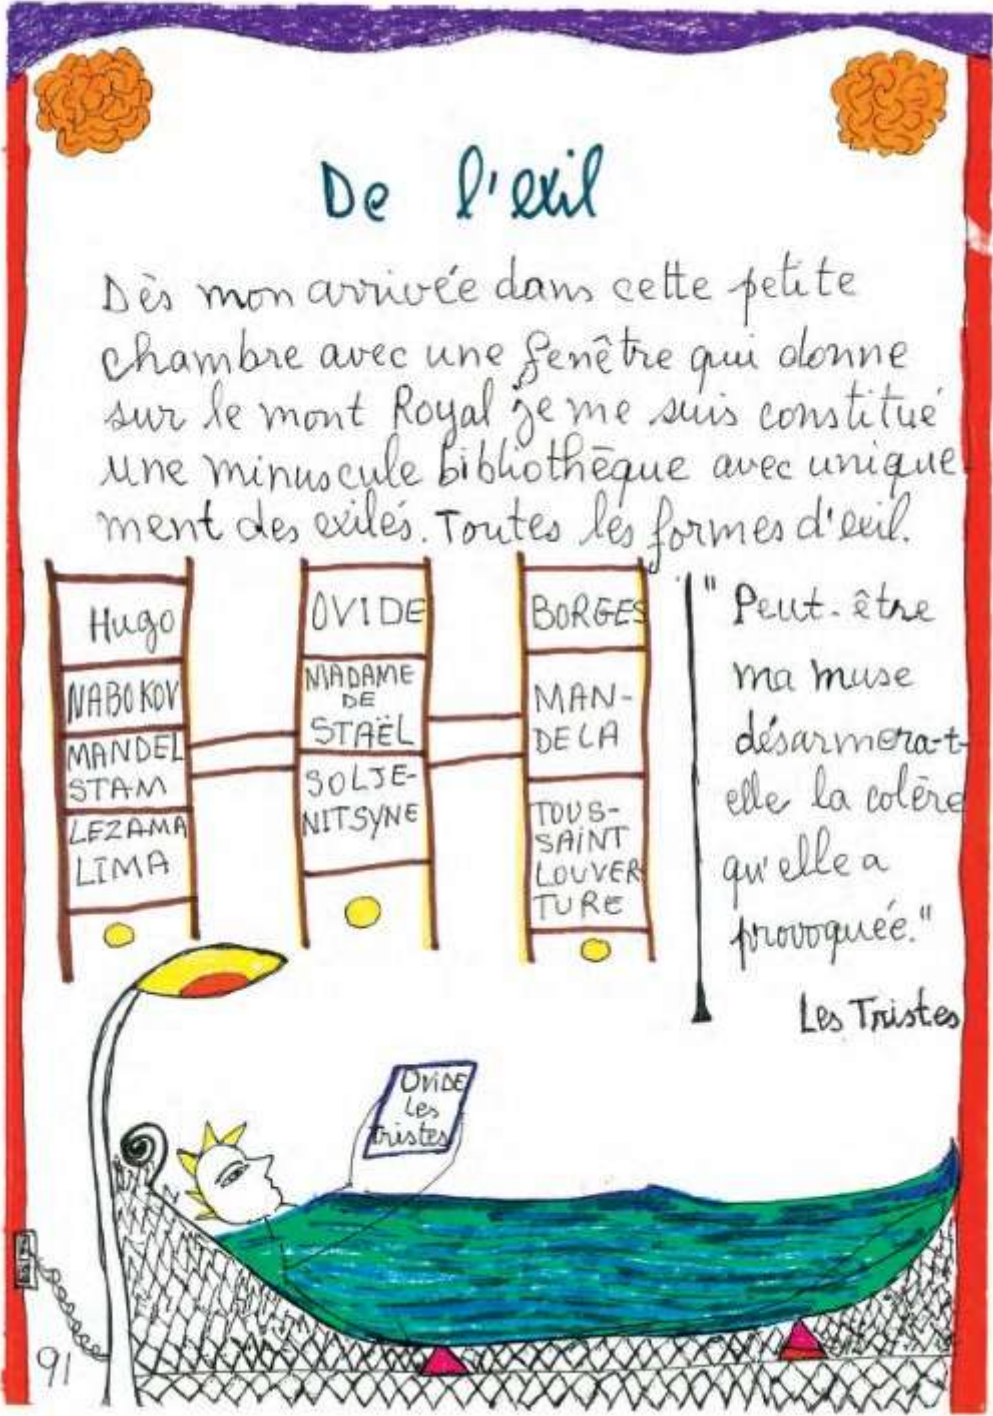 De l'exil
Dès mon arrivée dans cette petite
chambre avec une fenêtre qui donne
sur le mont Royal je me suis constitué
une minuscule bibliothèque avec unique-
ment des exilés. Toutes les formes d'exil.
Hugo
NABOKOV
MANDEL
STAM
LEZAMA
LIMA
OVIDE
MADAME
DE
STAËL
SOLJE-
NITSYNE
BORGES
MAN-
DELA
TOUS-
SAINT
LOUVER
TURE
"Peut-être
ma muse
désarmera-t-
elle la colère
qu'elle a
provoquée."
Les Tristes
Ovide
Les
Tristes
91